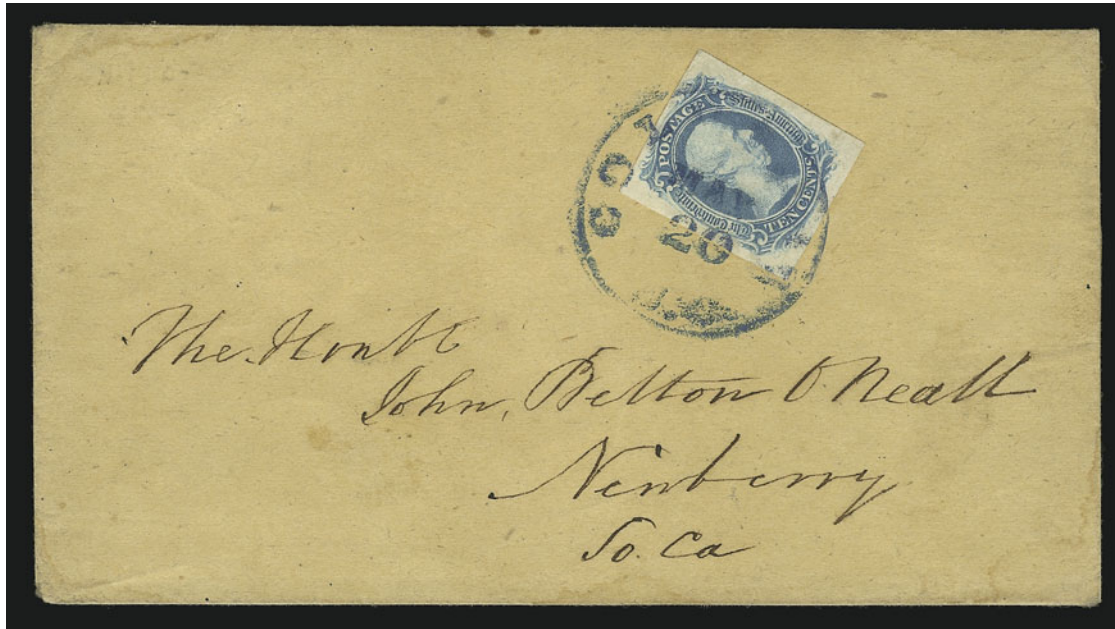 POSTAGE
The Confederate
States of America
TEN CENTS
MAR
20
The Honble
John Belton O'Neall
Newberry
So. Ca